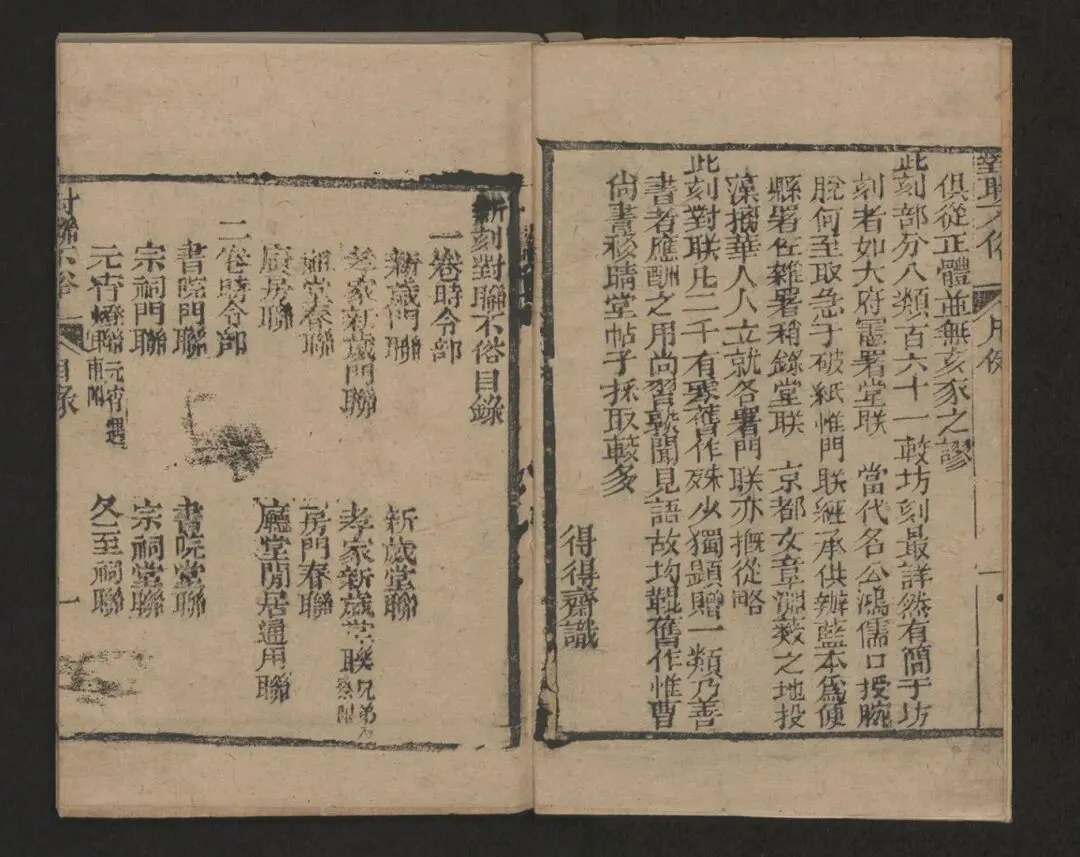 俱從正體並無亥豕之謬
此刻部分八類百六十一較坊刻最詳然有簡于坊
刻者如大府憲署堂联　當代名公鴻儒口授腕
脫何至取急于破紙惟門联經承供辦藍本為便
縣署佐雜署稍錄堂联　京都文章淵薮之地投
藻摛華人人立就各署門联亦概從略
此刻對联凡二千有零舊作殊少獨顕贈一類乃善
書者應酬之用尚習熟聞見語故均輯舊作惟曹
尙書移晴堂帖子採取較多
得得齋識
新刻對聯不俗目錄
一卷時令部
新歲門聯
新歲堂聯
孝家新歲門聯
孝家新歲堂聯
兄弟
廚房聯
房門春聯
廳堂閒居通用聯
二卷時令部
書院門聯
書院堂聯
宗祠門聯
宗祠堂聯
元宵燈聯
冬至祠聯
對聯不俗
目錄
一